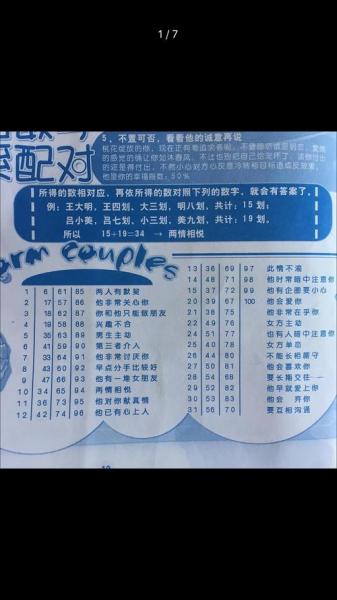 1/7
配对
5、不置可否，看看他的诚意再说
他是你的幸福指数：50%
所得的数相对应，再依所得的数对照下列的数字，就会有答案了。
例：王大明，王四划，大三划，明八划，共计：15划；
吕小美，吕七划，小三划，美九划，共计：19划。
所以 15+19=34 → 两情相悦
arm couples
1 6 61 85 两人有默契
2 17 57 86 他非常关心你
3 18 62 87 你和他只能做朋友
4 19 58 88 兴趣不合
5 35 63 89 男生主动
6 41 59 90 第三者介入
7 33 64 91 他非常讨厌你
8 43 60 92 早点分手比较好
9 47 66 93 他有一堆女朋友
10 34 65 94 两情相悦
11 36 73 95 他对你献真情
12 42 74 96 他已有心上人
13 36 69 97 此情不渝
14 48 71 98 他时常暗中注意你
15 37 72 99 他有企图要小心
20 39 67 100 他会爱你
21 38 75 他非常在乎你
22 49 76 女方主动
24 51 77 也有人暗中注意你
25 40 78 女方单恋
26 44 80 不能长相厮守
27 50 81 他会喜欢你
28 54 68 要长期交往
29 52 82 他早就爱上你
30 53 83 他会 弃你
31 56 70 要互相沟通